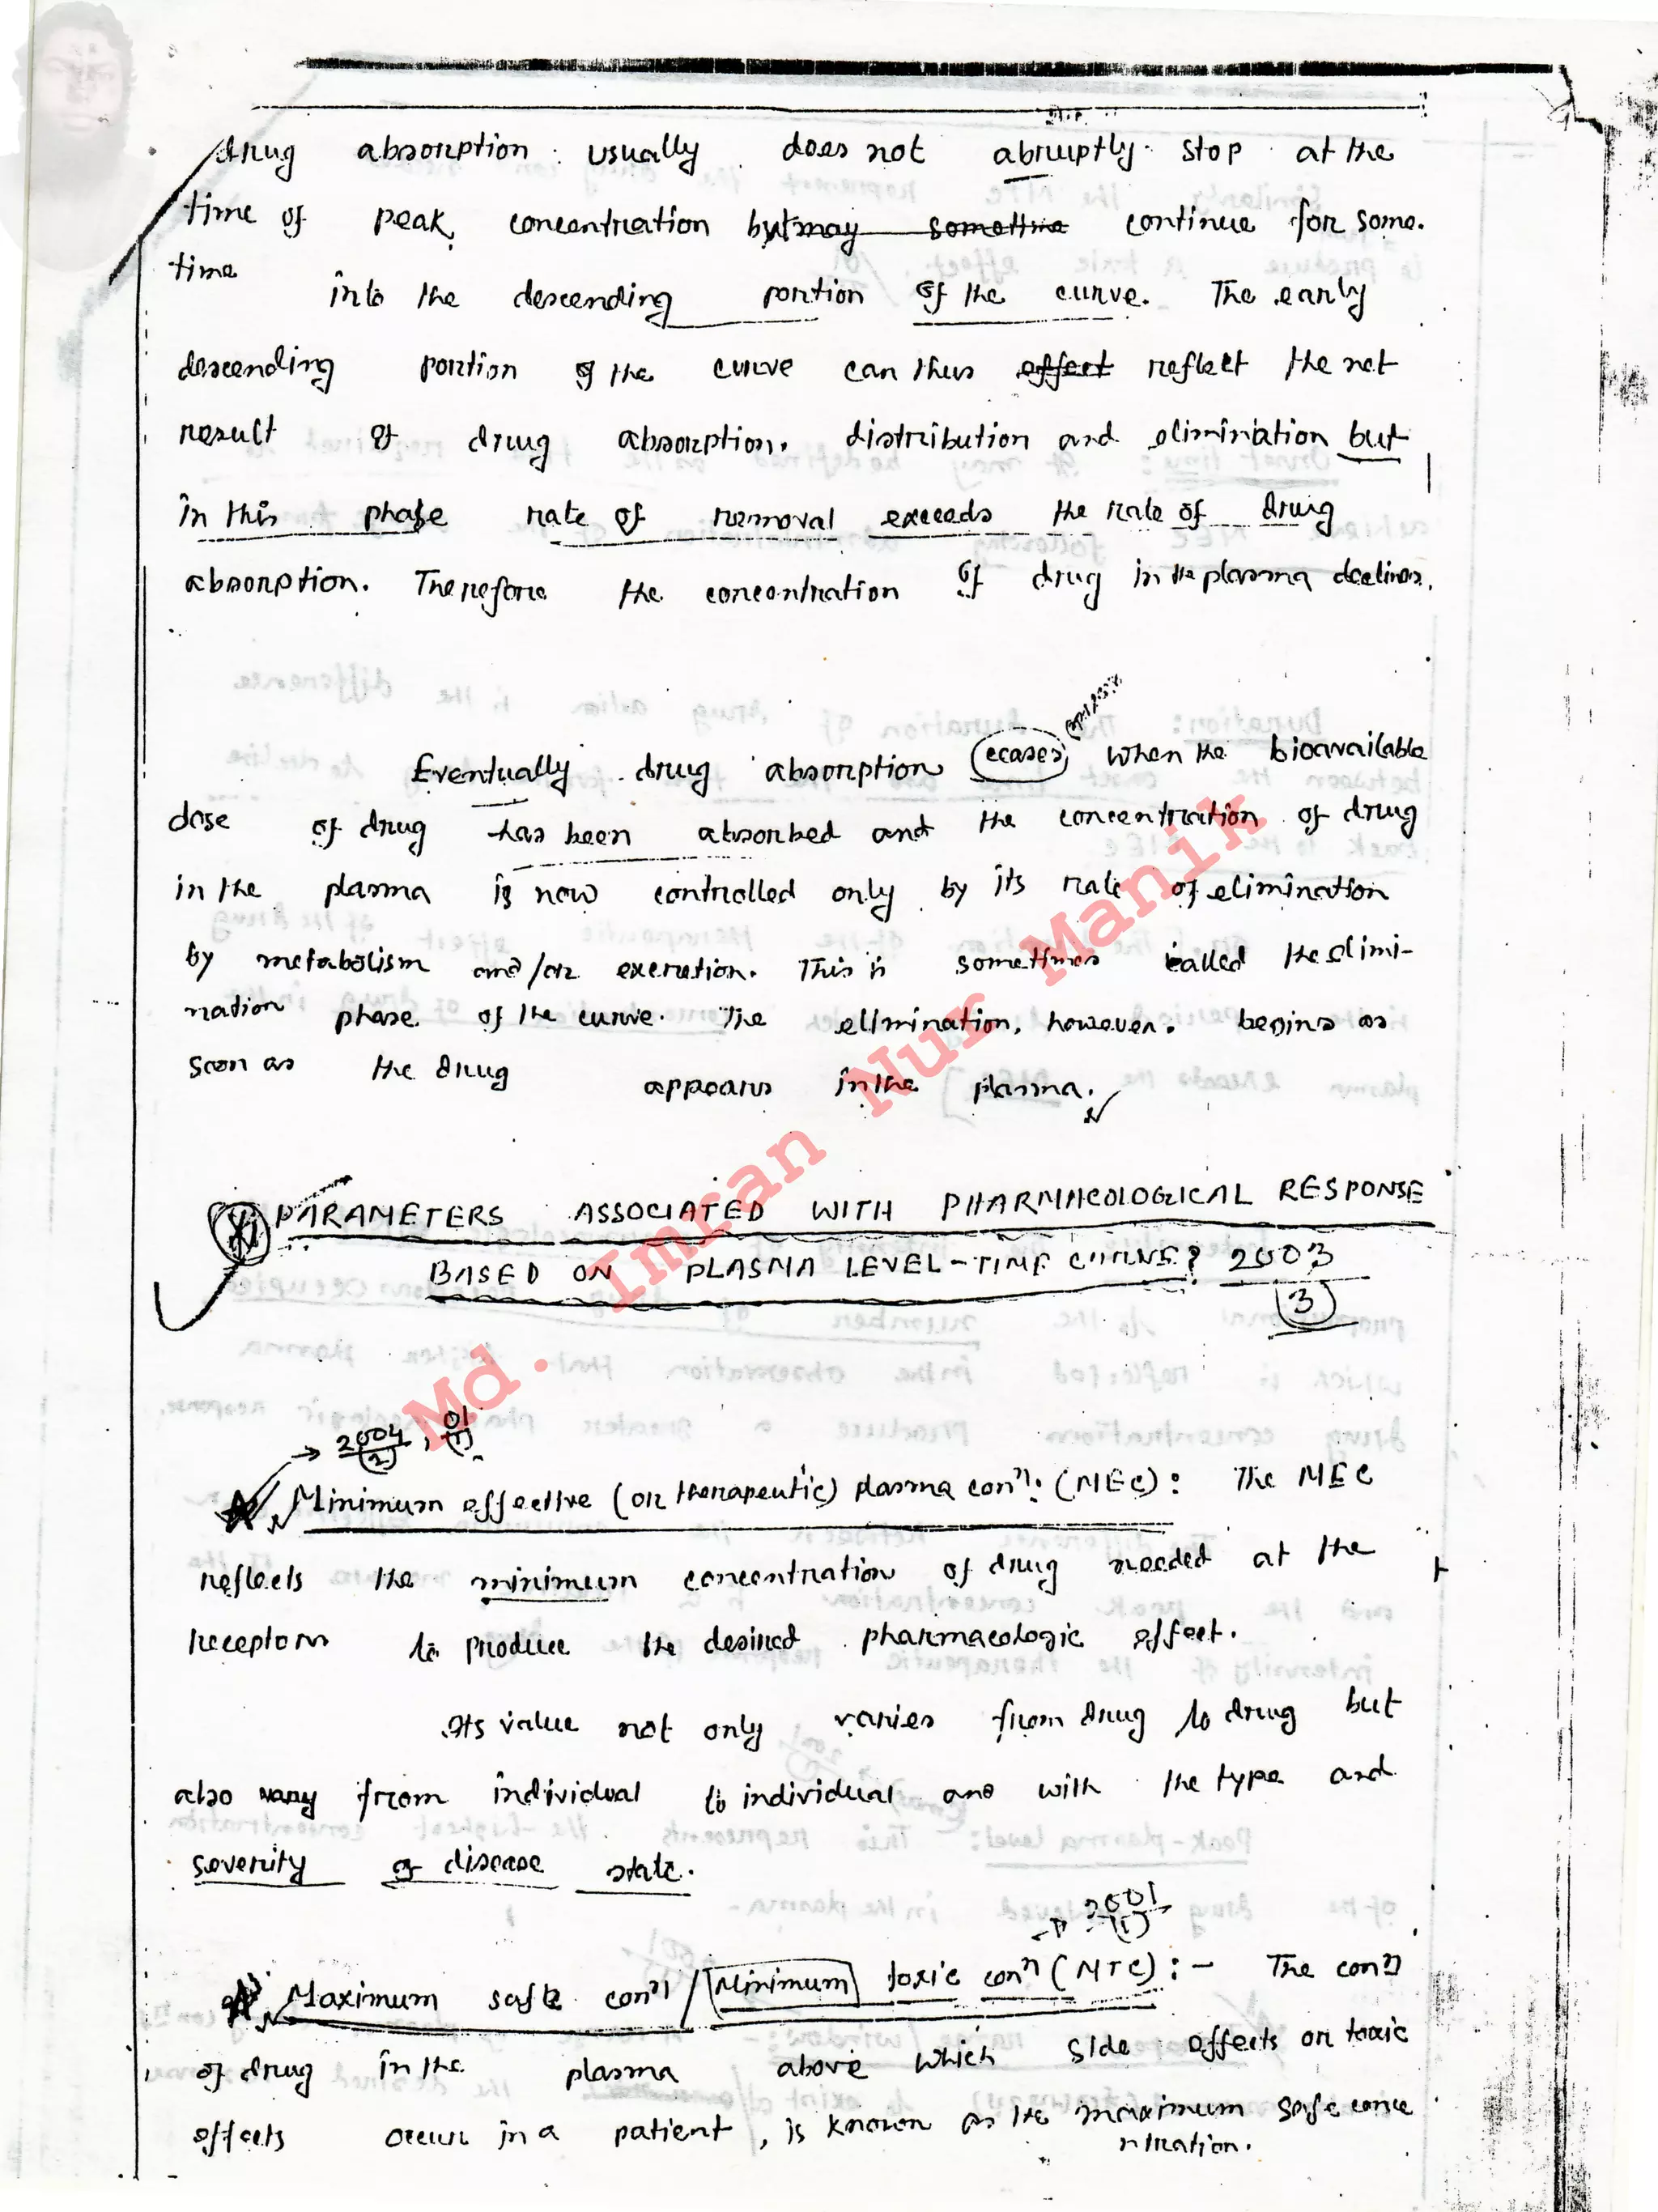 drug absorption usually does not abruptly stop at the
time of peak concentration but may sometime continue for some
time
into the descending portion of the curve. The early
descending portion of the curve can thus effect reflect the net
result of drug absorption. distribution and elimination but
in this phase rate of removal exceeds the rate of drug
absorption. Therefore the concentration of drug in the plasma declines.
Eventually drug absorption ceases when the bioavailable
dose of drug has been absorbed and the concentration of drug
in the plasma is now controlled only by its rate of elimination
by metabolism and/or excretion. This is sometimes called the elimi-
nation phase of the curve. The elimination, however. begins as
soon as the drug appears in the plasma.
PARAMETERS ASSOCIATED WITH PHARMACOLOGICAL RESPONSE
BASED ON PLASMA LEVEL-TIME CURVE? 2003
3
→ 2004/(2), 01/(1)
Minimum effective (or therapeutic) plasma conⁿ: (MEC): The MEC
reflects the minimum concentration of drug needed at the
receptors to produce the desired pharmacologic effect.
Its value not only varies from drug to drug but
also vary from individual to individual and with the type and
severity of disease state.
→ 2001/(1)
Maximum safe conⁿ / Minimum toxic conⁿ (MTC):- The conⁿ
of drug in the plasma above which side effects or toxic
effects occur in a patient, is known as the maximum safe conce
ntration.
Md. Imran Nur Manik